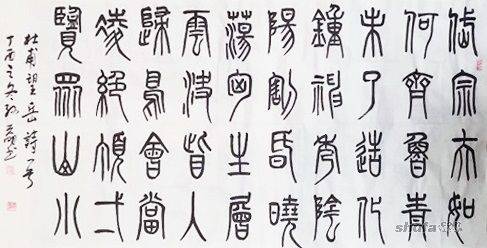 岱宗夫如
何齊魯青
未了造化
鐘神秀陰
陽割昏曉
蕩匈生層
雲決眥入
歸鳥會當
凌絕頂弌
覽眾山小
杜甫望岳詩一首
丁酉之冬